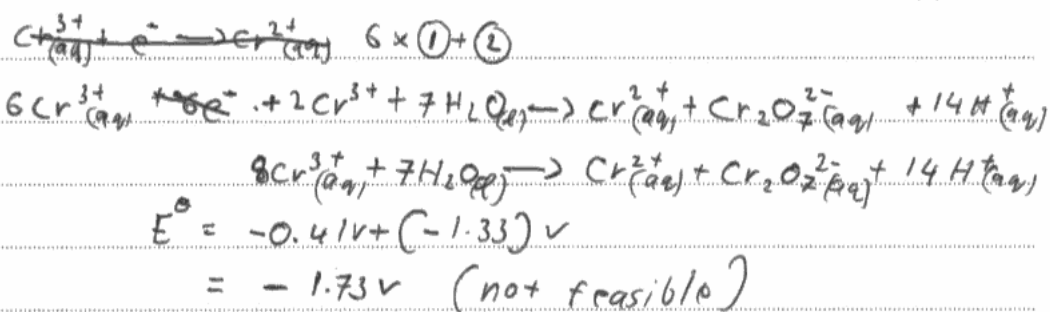 Cr³⁺(aq) + e⁻ → Cr²⁺(aq) 6 × ① + ②
6Cr³⁺(aq) + 6e⁻ . + 2Cr³⁺ + 7H₂O(l) → Cr²⁺(aq) + Cr₂O₇²⁻(aq) + 14H⁺(aq)
8Cr³⁺(aq) + 7H₂O(l) → Cr²⁺(aq) + Cr₂O₇²⁻(aq) + 14H⁺(aq)
E^⦵ = -0.41v + (-1.33)v
= - 1.73v (not feasible)